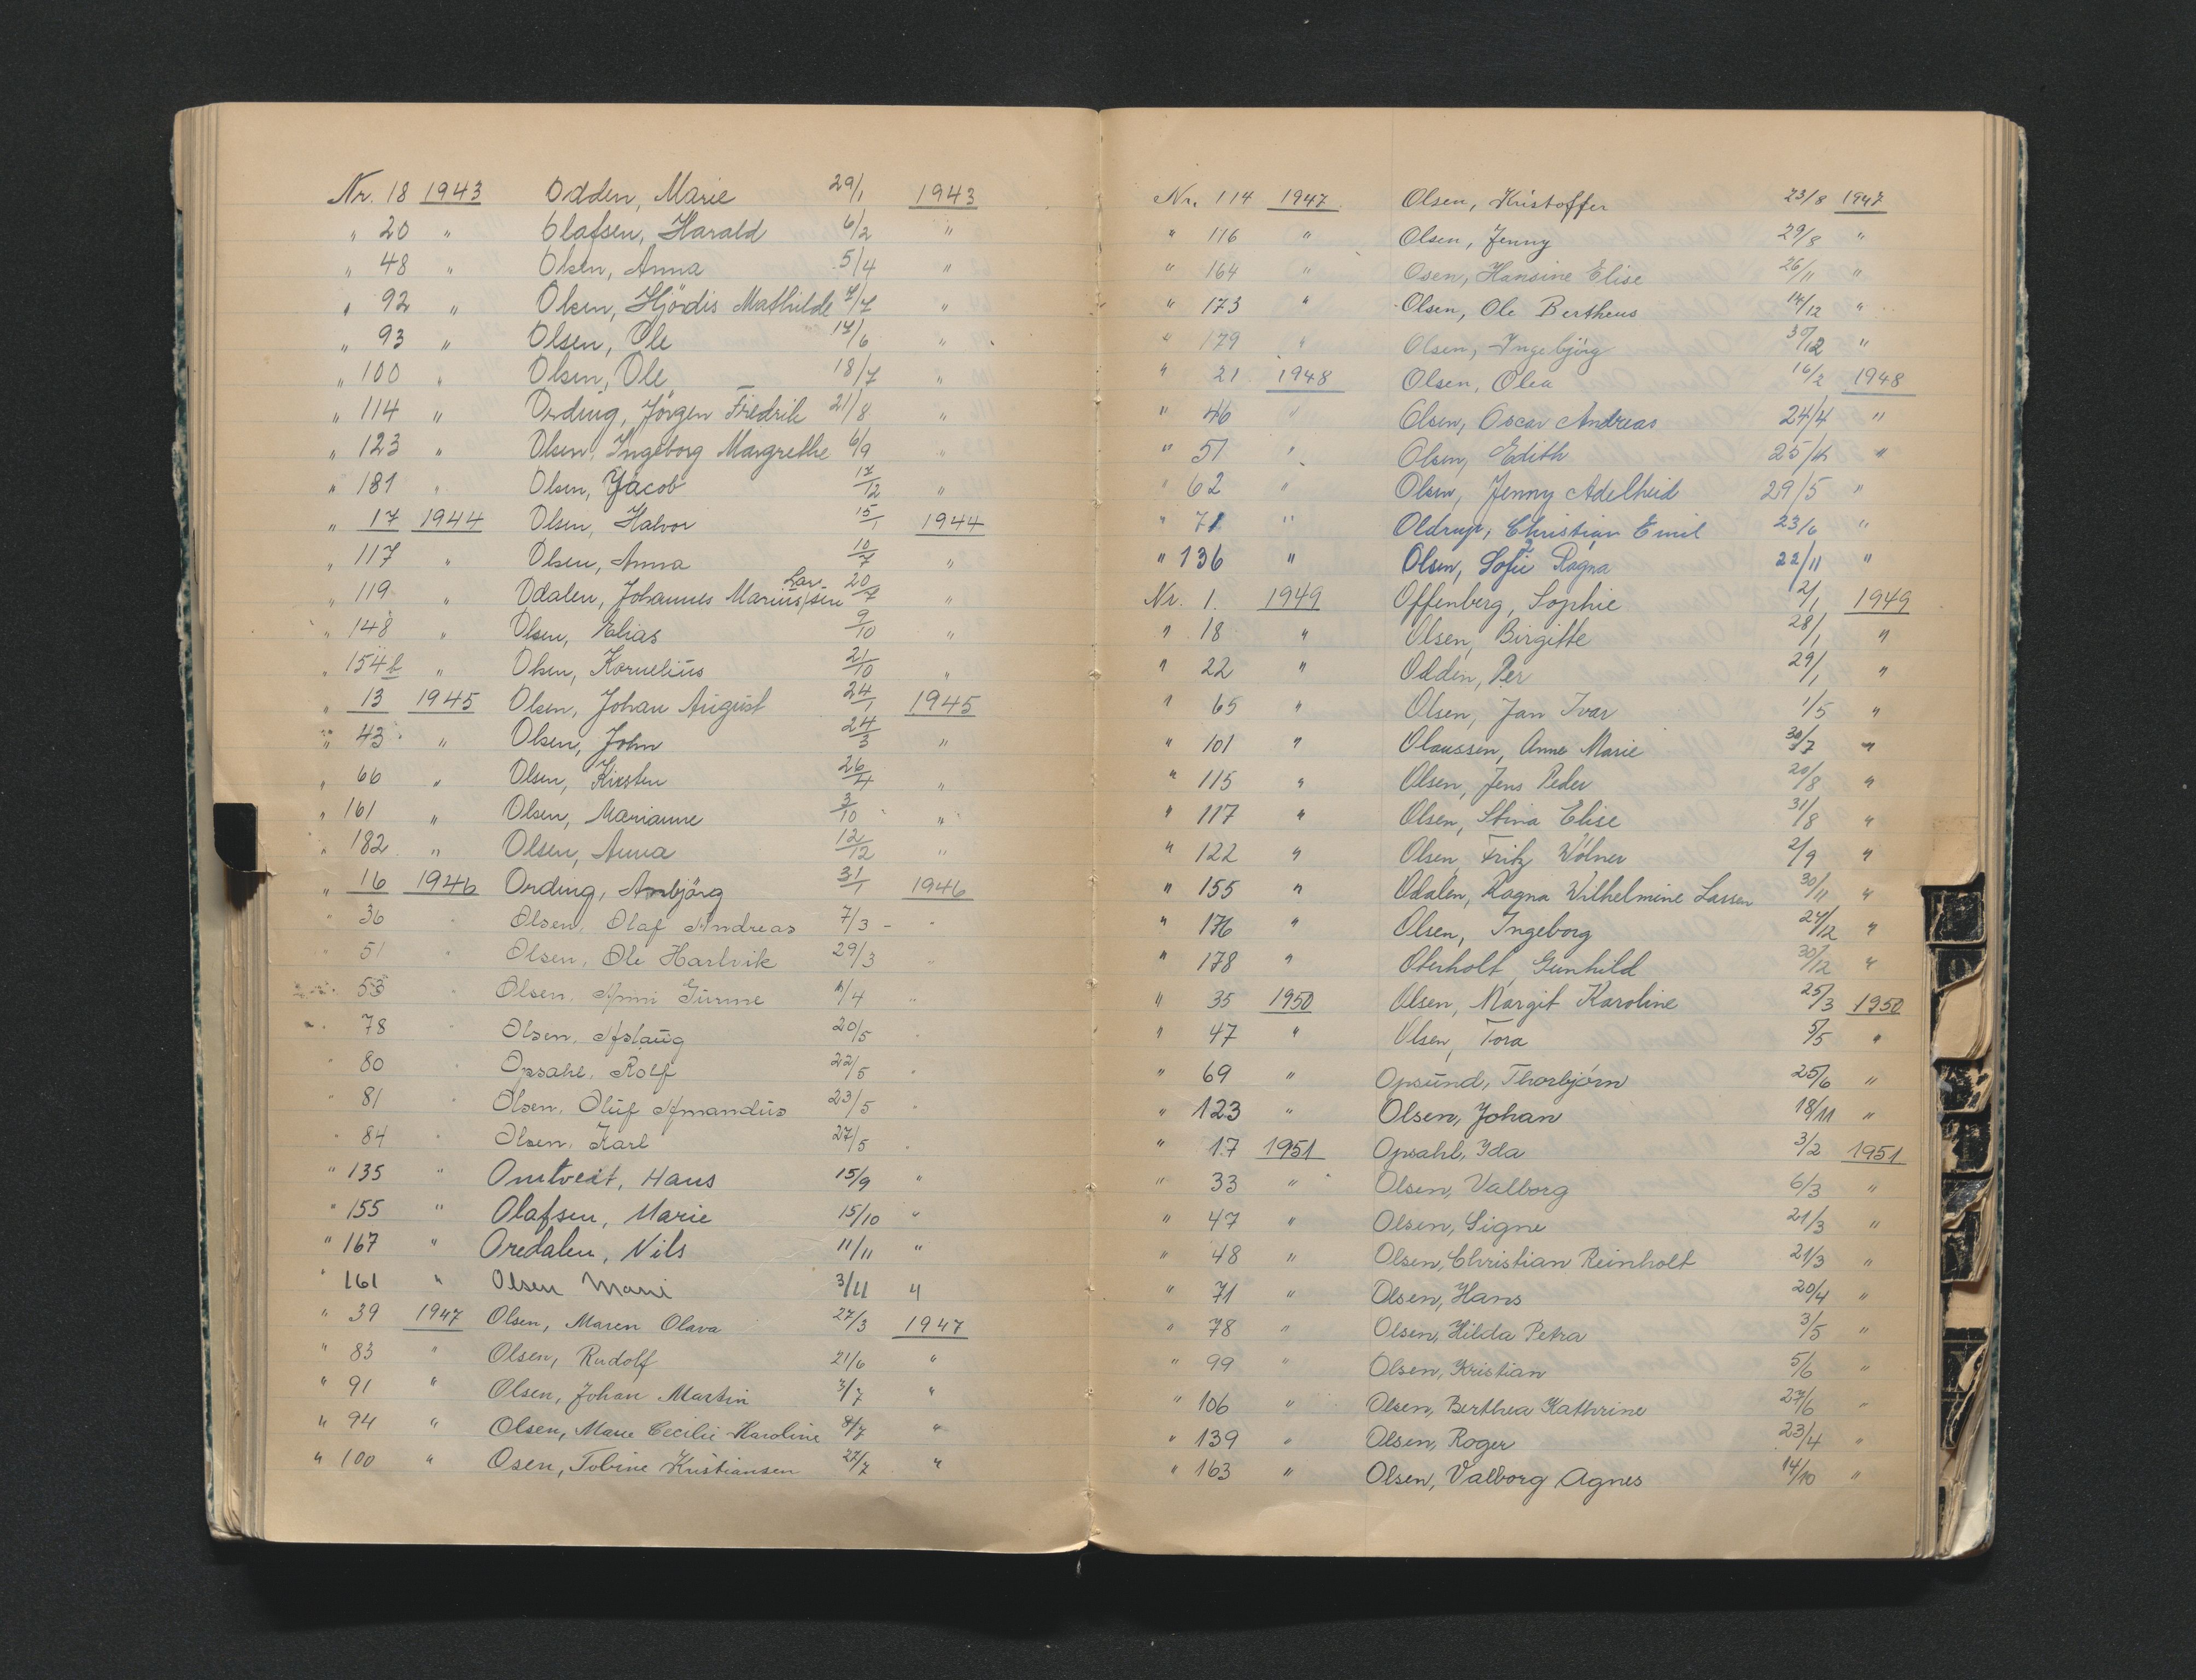 Nr. 18 1943 Odden, Marie 29/1 1943
" 20 " Olafsen, Harald 6/2 "
" 48 " Olsen, Anna 5/4 "
" 92 " Olsen, Hjördis Mathilde 7/7 "
" 93 " Olsen, Ole 17/6 "
" 100 " Olsen, Ole 18/7 "
" 114 " Ording, Jörgen Fredrik 21/8 "
" 123 " Olsen, Ingeborg Margrethe 6/9 "
" 181 " Olsen, Jacob 17/12 "
" 17 1944 Olsen, Halvor 15/1 1944
" 117 " Olsen, Anna 10/7 "
" 119 " Odalen, Johannes Marius Larsen 20/7 "
" 148 " Olsen, Elias 9/10 "
" 154b " Olsen, Kornelius 21/10 "
" 13 1945 Olsen, Johan August 24/1 1945
" 43 " Olsen, John 24/3 "
" 66 " Olsen, Kirsten 26/4 "
" 161 " Olsen, Marianne 3/10 "
" 182 " Olsen, Anna 12/12 "
" 16 1946 Ording, Arnbjörg 31/1 1946
" 36 " Olsen, Olaf Andreas 7/3 - "
" 51 " Olsen, Ole Hartvik 29/3 "
" 53 " Olsen, 1/4 "
" 78 " Olsen, Aslaug 20/5
" 80 Opsahl, Rolf 22/5 "
" 81 " Olsen, Oluf Amandus 23/5 "
" 84 " Olsen, Karl 27/5 "
" 135 " Omtvedt, Hans 15/9 "
" 155 " Olafsen, Marie 15/10 "
" 167 " Oredalen, Nils 11/11 "
" 161 " Olsen Marie 3/11 "
" 39 1947 Olsen, Maren Olava 27/3 1947
" 83 " Olsen, Rudolf 21/6 "
" 91 " Olsen, Johan Martin 3/7 "
" 94 " Olsen, Marie Cecilie Karoline 8/7 "
" 100 " Osen, Tobine Kristiansen 27/7 "
Nr. 114 1947 Olsen, Kristoffer 23/8 1947
" 116 " Olsen, Jenny 29/8 "
" 164 " Osen, Hansine Elise 26/11 "
" 173 " Olsen, Ole Bertheus 14/12 "
" 179 " Olsen, Ingebjörg 30/12 "
" 21 1948 Olsen, Olea 16/2 1948
" 46 " Olsen, Oscar Andreas 24/4 "
" 51 " Olsen, Edith 25/4 "
" 62 " Olsen, Jenny Adelheid 29/5 "
" 71 " Oldrup, Christian Emil 23/6 "
" 136 " Olsen, Sofie Ragna 22/11 "
Nr. 1. 1949 Offenberg, Sophie 2/1 1949
" 18 " Olsen, Birgitte 28/1 "
" 22 " Odden, Per 29/1 "
" 65 " Olsen, Jan Ivar 1/5 "
" 101 " Olaussen, Anne Marie 30/7 "
" 115 " Olsen, Jens Peder 20/8 "
" 117 " Olsen, Stina Elise 31/8 "
" 122 " Olsen, Fritz Wölner 2/9 "
" 155 " Odalen, Ragna Wilhelmine Larsen 30/11 "
" 176 " Olsen, Ingeborg 24/12 "
" 178 " Oterholt, Gunhild 30/12 "
" 35 1950 Olsen, Margit Karoline 25/3 1950
" 47 " Olsen, Tora 5/5 "
" 69 " Opsund, Thorbjörn 25/6 "
" 123 " Olsen, Johan 18/11 "
" 17 1951 Opsahl, Ida 3/2 1951
" 33 " Olsen, Valborg 6/3 "
" 47 " Olsen, Signe 21/3 "
" 48 " Olsen, Christian Reinholt 21/3 "
" 71 " Olsen, Hans 20/4 "
" 78 " Olsen, Hilda Petra 3/5 "
" 99 " Olsen, Kristian 5/6 "
" 106 " Olsen, Berthea Kathrine 27/6 "
" 139 " Olsen, Roger 23/4 "
" 163 " Olsen, Valborg Agnes 14/10 "